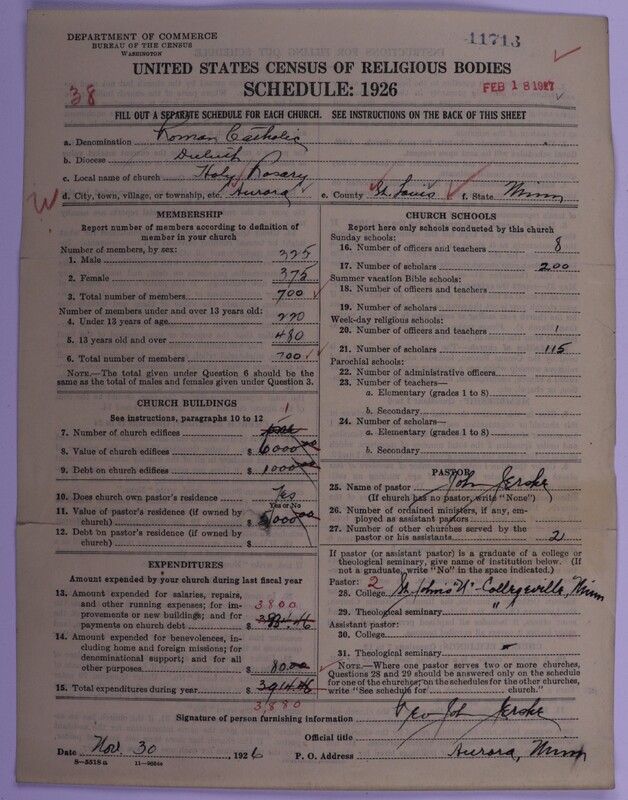 DEPARTMENT OF COMMERCE
BUREAU OF THE CENSUS
WASHINGTON
11713
UNITED STATES CENSUS OF RELIGIOUS BODIES
SCHEDULE: 1926
38
FEB 18 1927
FILL OUT A SEPARATE SCHEDULE FOR EACH CHURCH. SEE INSTRUCTIONS ON THE BACK OF THIS SHEET
a. Denomination Roman Catholic
b. Diocese Duluth
c. Local name of church Holy Rosary
d. City, town, village, or township, etc. Aurora e. County St. Louis f. State Minn
MEMBERSHIP
Report number of members according to definition of
member in your church
Number of members, by sex:
1. Male 325
2. Female 375
3. Total number of members 700
Number of members under and over 13 years old:
4. Under 13 years of age 220
5. 13 years old and over 480
6. Total number of members 700
NOTE.—The total given under Question 6 should be
same as the total of males and females given under Question 3.
CHURCH BUILDINGS
See instructions, paragraphs 10 to 12
1
7. Number of church edifices
8. Value of church edifices $ 6000.00
9. Debt on church edifices $ 1000.00
10. Does church own pastor's residence Yes
Yes or No
11. Value of pastor's residence (if owned by
church) $ 5000.00
12. Debt on pastor's residence (if owned by
church) $
EXPENDITURES
Amount expended by your church during last fiscal year
13. Amount expended for salaries, repairs,
and other running expenses; for im- 3800
provements or new buildings; and for
payments on church debt $ 3834.46
14. Amount expended for benevolences, including
home and foreign missions; for
denominational support; and for all
other purposes $ 80.00
15. Total expenditures during year $ 3914.46
3880
CHURCH SCHOOLS
Report here only schools conducted by this church
Sunday schools:
16. Number of officers and teachers 8
17. Number of scholars 200
Summer vacation Bible schools:
18. Number of officers and teachers
19. Number of scholars
Week-day religious schools:
20. Number of officers and teachers 1
21. Number of scholars 115
Parochial schools:
22. Number of administrative officers
23. Number of teachers—
a. Elementary (grades 1 to 8)
b. Secondary
24. Number of scholars—
a. Elementary (grades 1 to 8)
b. Secondary
PASTOR
25. Name of pastor John Jerske
(If church has no pastor, write "None")
26. Number of ordained ministers, if any, em-
ployed as assistant pastors
27. Number of other churches served by the
pastor or his assistants 2
If pastor (or assistant pastor) is a graduate of a college or
theological seminary, give name of institution below. (If
not a graduate, write "No" in the space indicated.)
Pastor: 2
28. College St. John's "U" - Collegeville, Minn
29. Theological seminary "
Assistant pastor:
30. College
31. Theological seminary
NOTE.—Where one pastor serves two or more churches,
Questions 28 and 29 should be answered only on the schedule
for one of the churches; on the schedules for the other churches,
write "See schedule for church."
Signature of person furnishing information Rev John Jerske
Official title
Date Nov. 30, 1926 P. O. Address Aurora, Minn
8-5518a 11-9024a